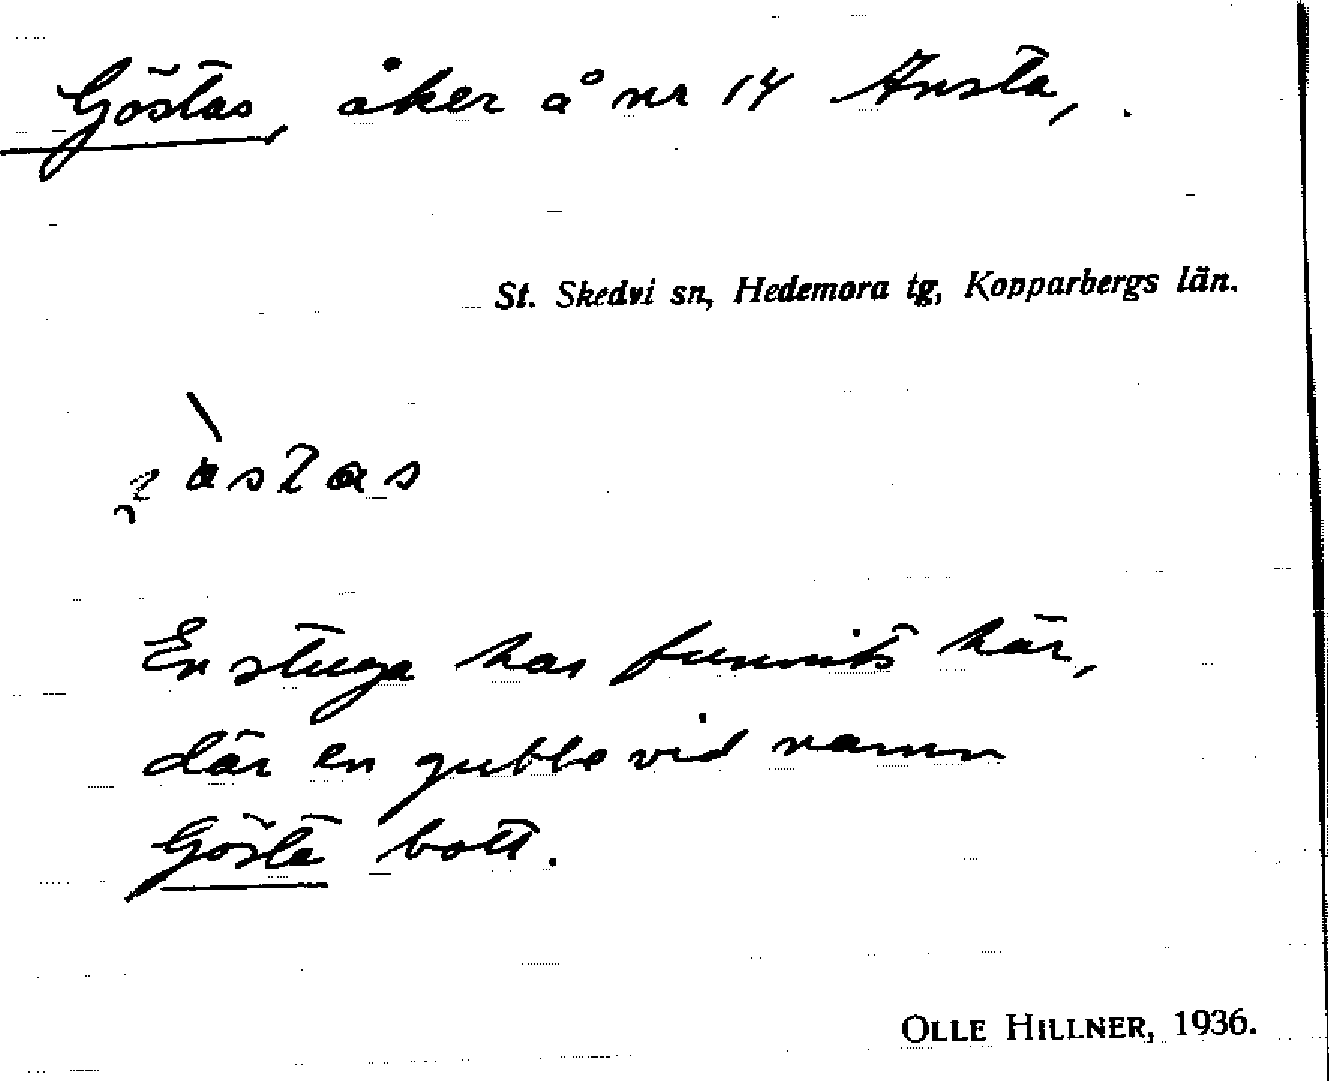 Göstas, åker å nr 14 Ansta,
St. Skedvi sn, Hedemora tg, Kopparbergs län.
En stuga har funnits här,
där en gubbe vid namn
Gösta bott.
OLLE HILLNER, 1936.